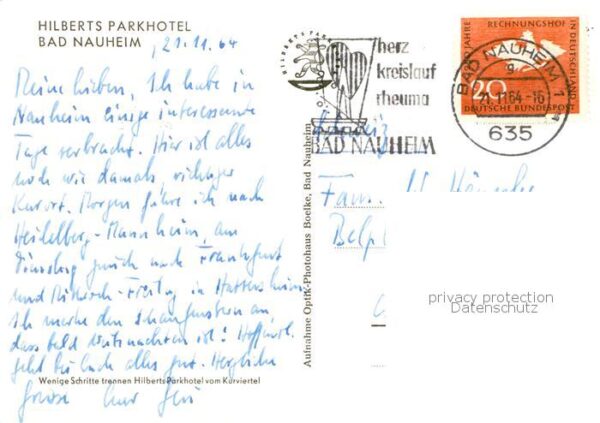 HILBERTS PARKHOTEL
BAD NAUHEIM
21.11.64
Meine Lieben, Ich habe in
Nauheim einige interessante
Tage verbracht. Hier ist alles
noch wie damals, richtiger
Kurort. Morgen fahre ich nach
Heidelberg-Mannheim, am
Dienstag zurück nach Frankfurt
und Mittwoch-Freitag in Hattersheim.
Ich merke den Schaufenstern an,
dass bald Weihnachten ist! Hoffentl.
geht es Euch alles gut. Herzliche
Grüsse Euer
Wenige Schritte trennen Hilberts Parkhotel vom Kurviertel
Aufnahme Optik-Photohaus Boelke, Bad Nauheim
HILBERTS PARK
herz
kreislauf
rheuma
BAD NAUHEIM
BAD NAUHEIM 1
g
21.11.64-16
635
JAHRE RECHNUNGSHOF IN DEUTSCHLAND
20
DEUTSCHE BUNDESPOST
Schweiz
Fam.
Belp
privacy protection
Datenschutz